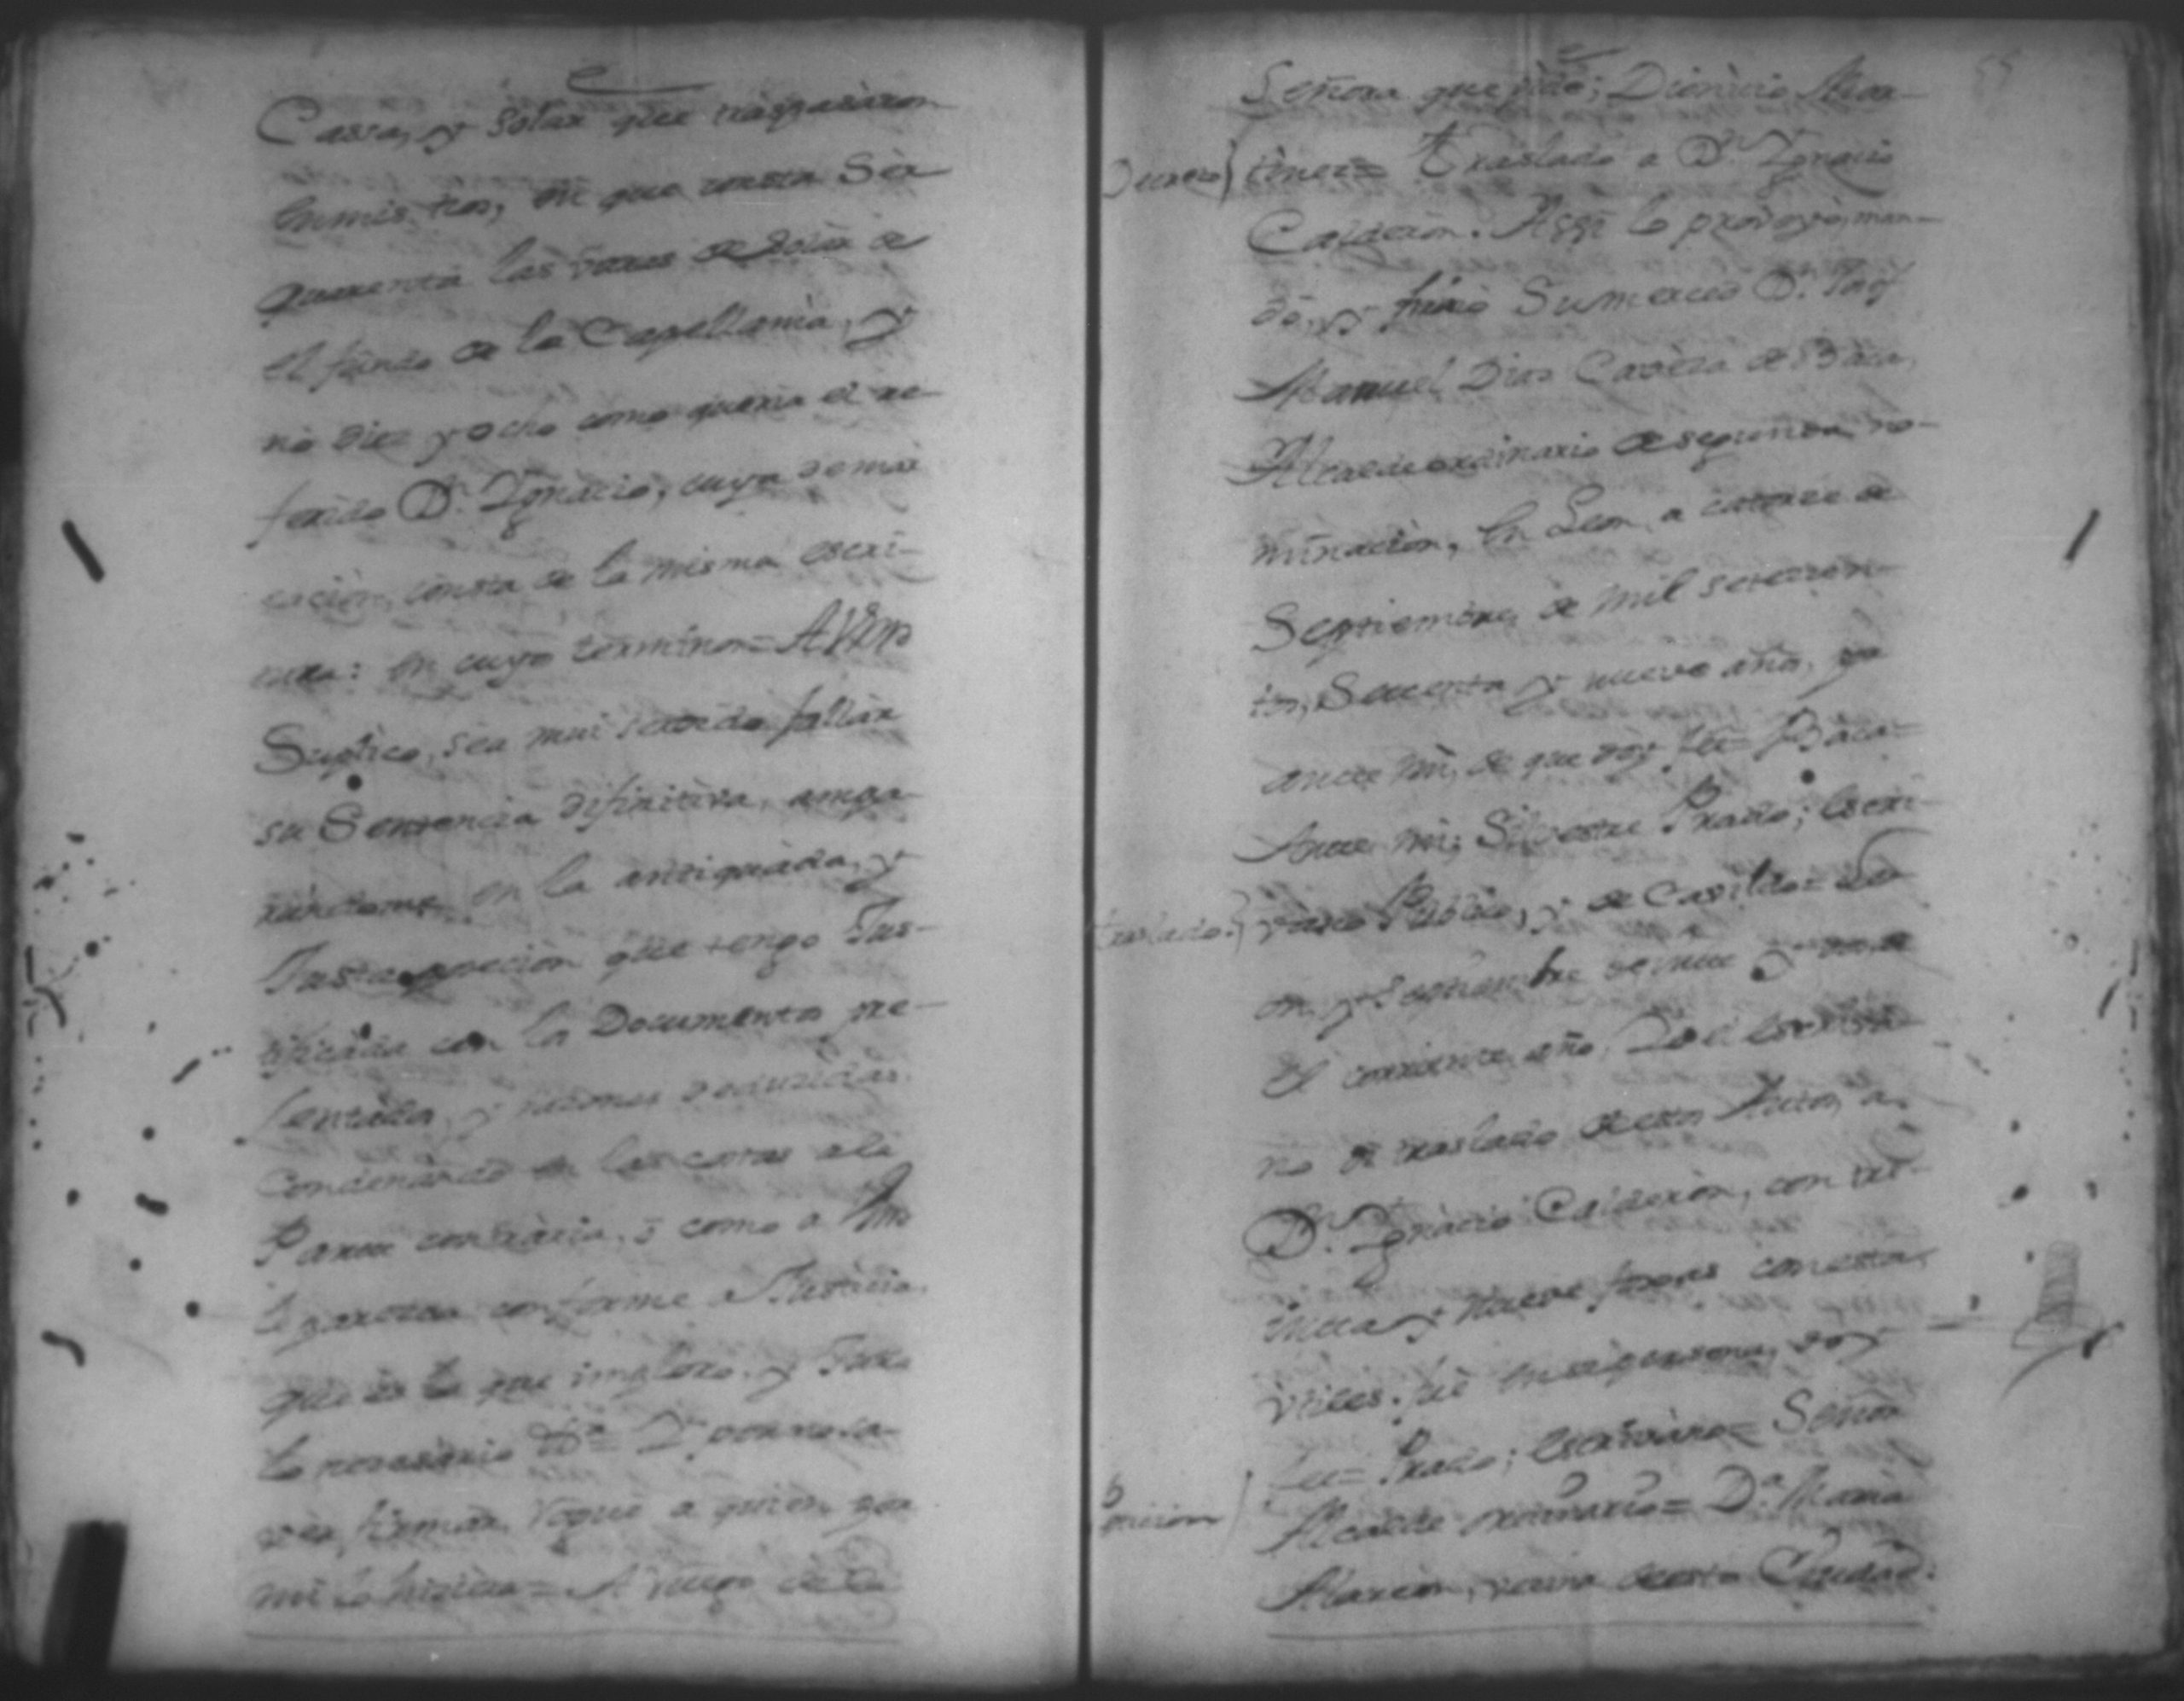 Cassa, y solar que traspasaron
en mis tios, en que consta ser
quarenta las varas de solar de
el fundo de la Capellania, y
no diez y ocho como queria el re-
ferido Dn. Ygnacio, cuya demar
cacion, consta de la misma escri-
tura: en cuyo termino= A Vmd
Suplico, sea mui servido fallar
su Sentencia difinitiva, ampa-
randome en la antiquada, y
Justa posecion que tengo Jus-
tificada con los Documentos pre-
sentados, y razones deducidas.
Condenando en las costas a la
Parte contraria, ó como a Vmd
le paresca conforme a Justicia
que es la que imploro, y Juro
lo nesesario &a= Y por no sa-
ver firmar, rogue a quien por
mi lo hiciera= A ruego de la
55
Señora que pide; Dionicio Mar-
Decreto} tinez= Traslado a Dn. Ygnacio
Calderon. Assi lo proveyó, man-
dó, y firmó Sumerced Dn.
Manuel Dias Caveza de Baca,
Alcalde ordinario de segunda no-
minacion, en Leon, a catorze de
Septiembre, de mil setecien-
tos, y nueve años, por
ante mi, de que doy fee= Baca=
Ante mi; Silvestre Prado; Escri-
traslado.} vano Publico, y de Cavildo= en
on, y Septiembre veinte y
el corriente año, Yo el Escriva-
no dí traslado de estos Autos, a
Dn. Ygnacio Calderon, con tre-
inta y nueve foxas con esta,
vtiles. fué en su persona, doy
fee= Prado; Escrivano= Señor
Peticion} Alcalde ordinario= Da. Maria
Alarcon, vecina de esta Ciudad: